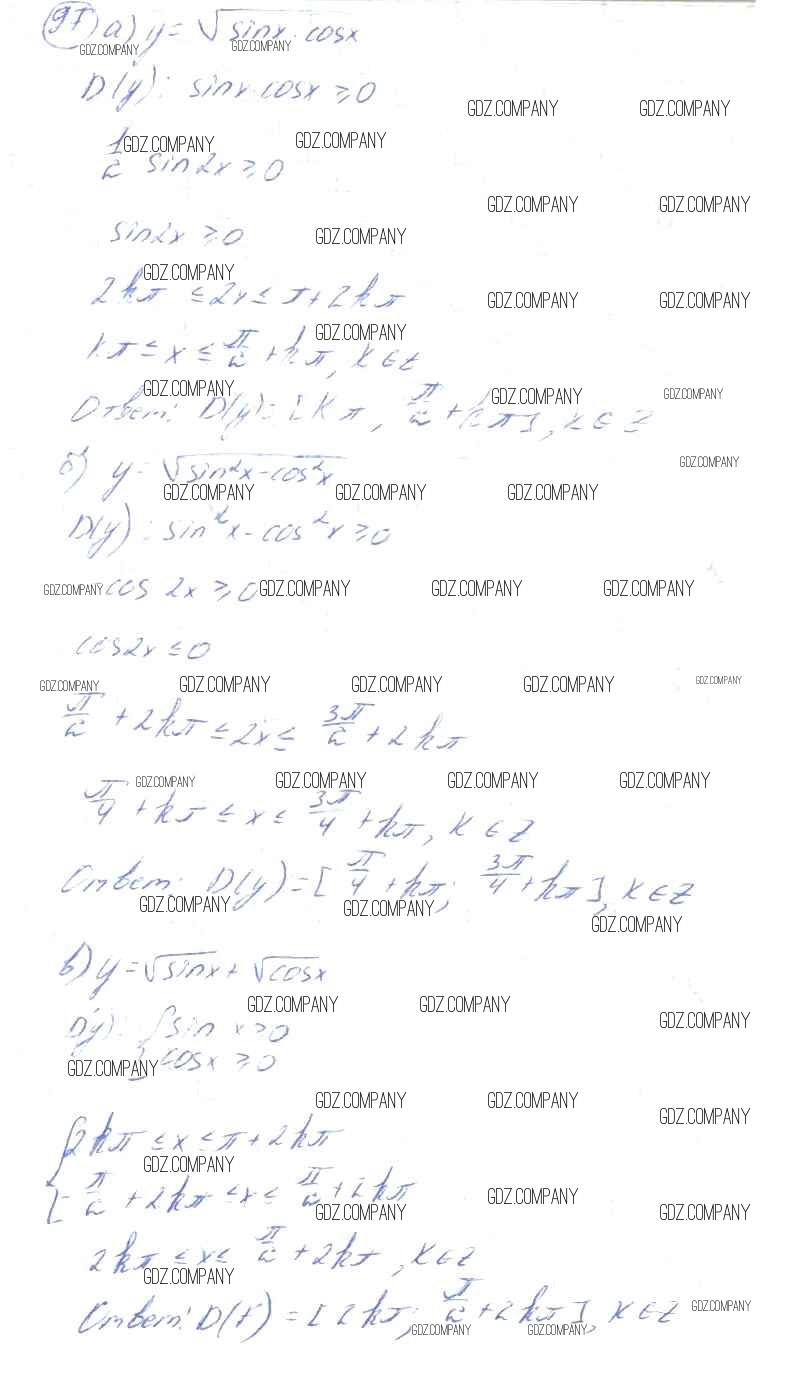 97) а) y = √sinx·cosx
GDZ.COMPANY GDZ.COMPANY
D(y): sinx·cosx ≥ 0
GDZ.COMPANY GDZ.COMPANY
1/2 sin2x ≥ 0
GDZ.COMPANY GDZ.COMPANY
GDZ.COMPANY GDZ.COMPANY
sin2x ≥ 0
GDZ.COMPANY
GDZ.COMPANY
2kπ ≤ 2x ≤ π + 2kπ
GDZ.COMPANY GDZ.COMPANY
GDZ.COMPANY
kπ ≤ x ≤ π/2 + kπ, k ∈ Z
GDZ.COMPANY GDZ.COMPANY GDZ.COMPANY
Ответ: D(y) = [kπ, π/2 + kπ], k ∈ Z
GDZ.COMPANY
б) y = √sin²x - cos²x
GDZ.COMPANY GDZ.COMPANY GDZ.COMPANY
D(y): sin²x - cos²x ≥ 0
GDZ.COMPANY -cos 2x ≥ 0 GDZ.COMPANY GDZ.COMPANY GDZ.COMPANY
cos2x ≤ 0
GDZ.COMPANY GDZ.COMPANY GDZ.COMPANY GDZ.COMPANY GDZ.COMPANY
π/2 + 2kπ ≤ 2x ≤ 3π/2 + 2kπ
GDZ.COMPANY GDZ.COMPANY GDZ.COMPANY GDZ.COMPANY
π/4 + kπ ≤ x ≤ 3π/4 + kπ, k ∈ Z
Ответ: D(y) = [π/4 + kπ; 3π/4 + kπ], k ∈ Z
GDZ.COMPANY GDZ.COMPANY GDZ.COMPANY
в) y = √sinx + √cosx
GDZ.COMPANY GDZ.COMPANY GDZ.COMPANY
D(y): { sin x ≥ 0
cosx ≥ 0
GDZ.COMPANY
GDZ.COMPANY GDZ.COMPANY GDZ.COMPANY
{ 2kπ ≤ x ≤ π + 2kπ
GDZ.COMPANY
-π/2 + 2kπ ≤ x ≤ π/2 + 2kπ
GDZ.COMPANY GDZ.COMPANY GDZ.COMPANY
2kπ ≤ x ≤ π/2 + 2kπ, k ∈ Z
GDZ.COMPANY
Ответ: D(f) = [2kπ; π/2 + 2kπ], k ∈ Z
GDZ.COMPANY GDZ.COMPANY GDZ.COMPANY